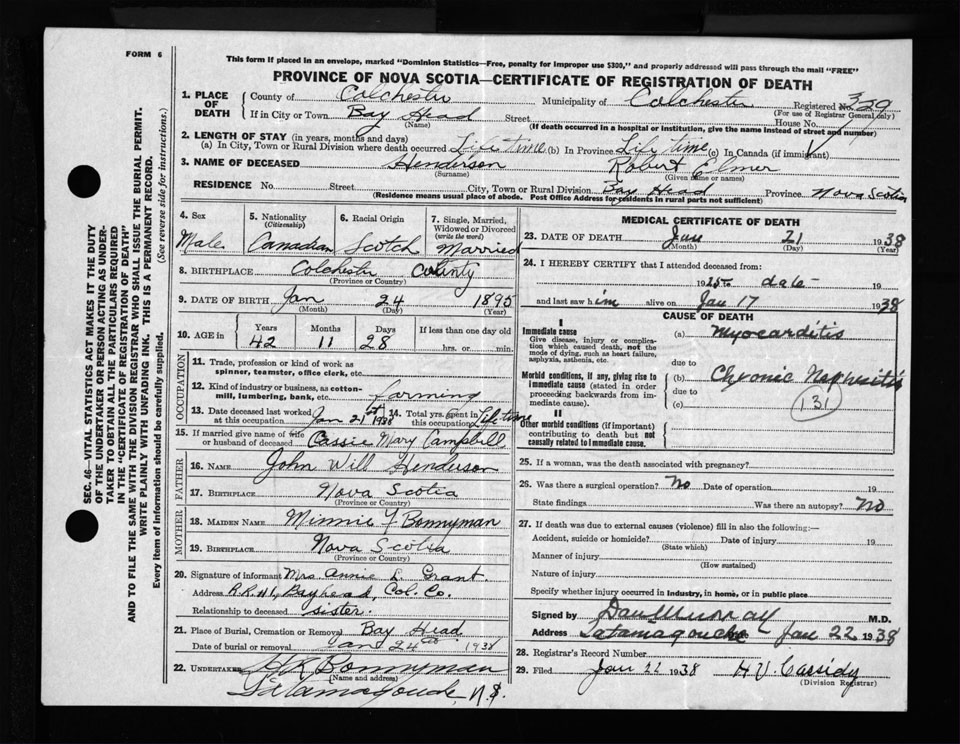 FORM 6
This form if placed in an envelope, marked "Dominion Statistics—Free, penalty for improper use $300," and properly addressed will pass through the mail "FREE"
PROVINCE OF NOVA SCOTIA—CERTIFICATE OF REGISTRATION OF DEATH
SEC. 46—VITAL STATISTICS ACT MAKES IT THE DUTY
OF THE UNDERTAKER OR PERSON ACTING AS UNDER-
TAKER TO OBTAIN ALL THE PARTICULARS REQUIRED
IN THE "CERTIFICATE OF REGISTRATION OF DEATH"
AND TO FILE THE SAME WITH THE DIVISION REGISTRAR WHO SHALL ISSUE THE BURIAL PERMIT.
WRITE PLAINLY WITH UNFADING INK. THIS IS A PERMANENT RECORD.
Every item of Information should be carefully supplied. (See reverse side for instructions.)
1. PLACE OF DEATH County of Colchester Municipality of Colchester Registered No. 329
(For use of Registrar General only)
If in City or Town Bay Head Street House No.
(Name) (If death occurred in a hospital or institution, give the name instead of street and number)
2. LENGTH OF STAY (in years, months and days)
(a) In City, Town or Rural Division where death occurred Life time (b) In Province Life time (c) In Canada (if immigrant)
3. NAME OF DECEASED Henderson Robert Elmer
(Surname) (Given name or names)
RESIDENCE No. Street City, Town or Rural Division Bay Head Province Nova Scotia
(Residence means usual place of abode. Post Office Address for residents in rural parts not sufficient)
4. Sex 5. Nationality (Citizenship) 6. Racial Origin 7. Single, Married, Widowed or Divorced (write the word)
Male Canadian Scotch Married
8. BIRTHPLACE Colchester County
(Province or Country)
9. DATE OF BIRTH Jan 24 1895
(Month) (Day) (Year)
10. AGE in Years Months Days If less than one day old
42 11 28 hrs. or min.
OCCUPATION
11. Trade, profession or kind of work as spinner, teamster, office clerk, etc.
12. Kind of industry or business, as cotton-mill, lumbering, bank, etc. farming
13. Date deceased last worked at this occupation Jan 21st 1938 14. Total yrs. spent in this occupation Life time
15. If married give name of wife or husband of deceased Cassie Mary Campbell
FATHER
16. NAME John Will Henderson
17. BIRTHPLACE Nova Scotia
(Province or Country)
MOTHER
18. MAIDEN NAME Minnie Y Bonnyman
19. BIRTHPLACE Nova Scotia
(Province or Country)
20. Signature of informant Mrs Annie L. Grant
Address R.R.#1, Bayhead, Col. Co.
Relationship to deceased sister.
21. Place of Burial, Cremation or Removal Bay Head
Date of burial or removal Jan 24th 1938
22. UNDERTAKER Bonnyman
(Name and address)
Tatamagouche, N.S.
MEDICAL CERTIFICATE OF DEATH
23. DATE OF DEATH Jan 21 1938
(Month) (Day) (County)
24. I HEREBY CERTIFY that I attended deceased from:
1925 to date
and last saw him alive on Jan 17 1938
CAUSE OF DEATH
I
Immediate cause (a) Myocarditis
Give disease, injury or complication which caused death, not the mode of dying, such as heart failure, asphyxia, asthenia, etc.
due to
Morbid conditions, if any, giving rise to immediate cause (stated in order proceeding backwards from immediate cause).
(b) Chronic Nephritis
due to
(c) 131
II
Other morbid conditions (if important) contributing to death but not causally related to immediate cause.
25. If a woman, was the death associated with pregnancy?
26. Was there a surgical operation? No Date of operation 19
State findings Was there an autopsy? No
27. If death was due to external causes (violence) fill in also the following:—
Accident, suicide or homicide? Date of injury 19
(State which)
Manner of injury
(How sustained)
Nature of injury
Specify whether injury occurred in industry, in home, or in public place
Signed by Dan Murray M.D.
Address Tatamagouche Jan 22 1938
28. Registrar's Record Number
29. Filed Jan 22 1938 H V Cassidy
(Division Registrar)